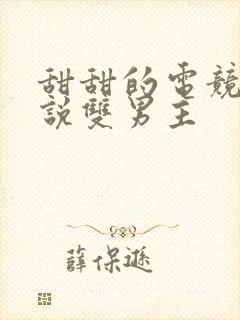 甜甜的電競
說雙男主
薛保遜